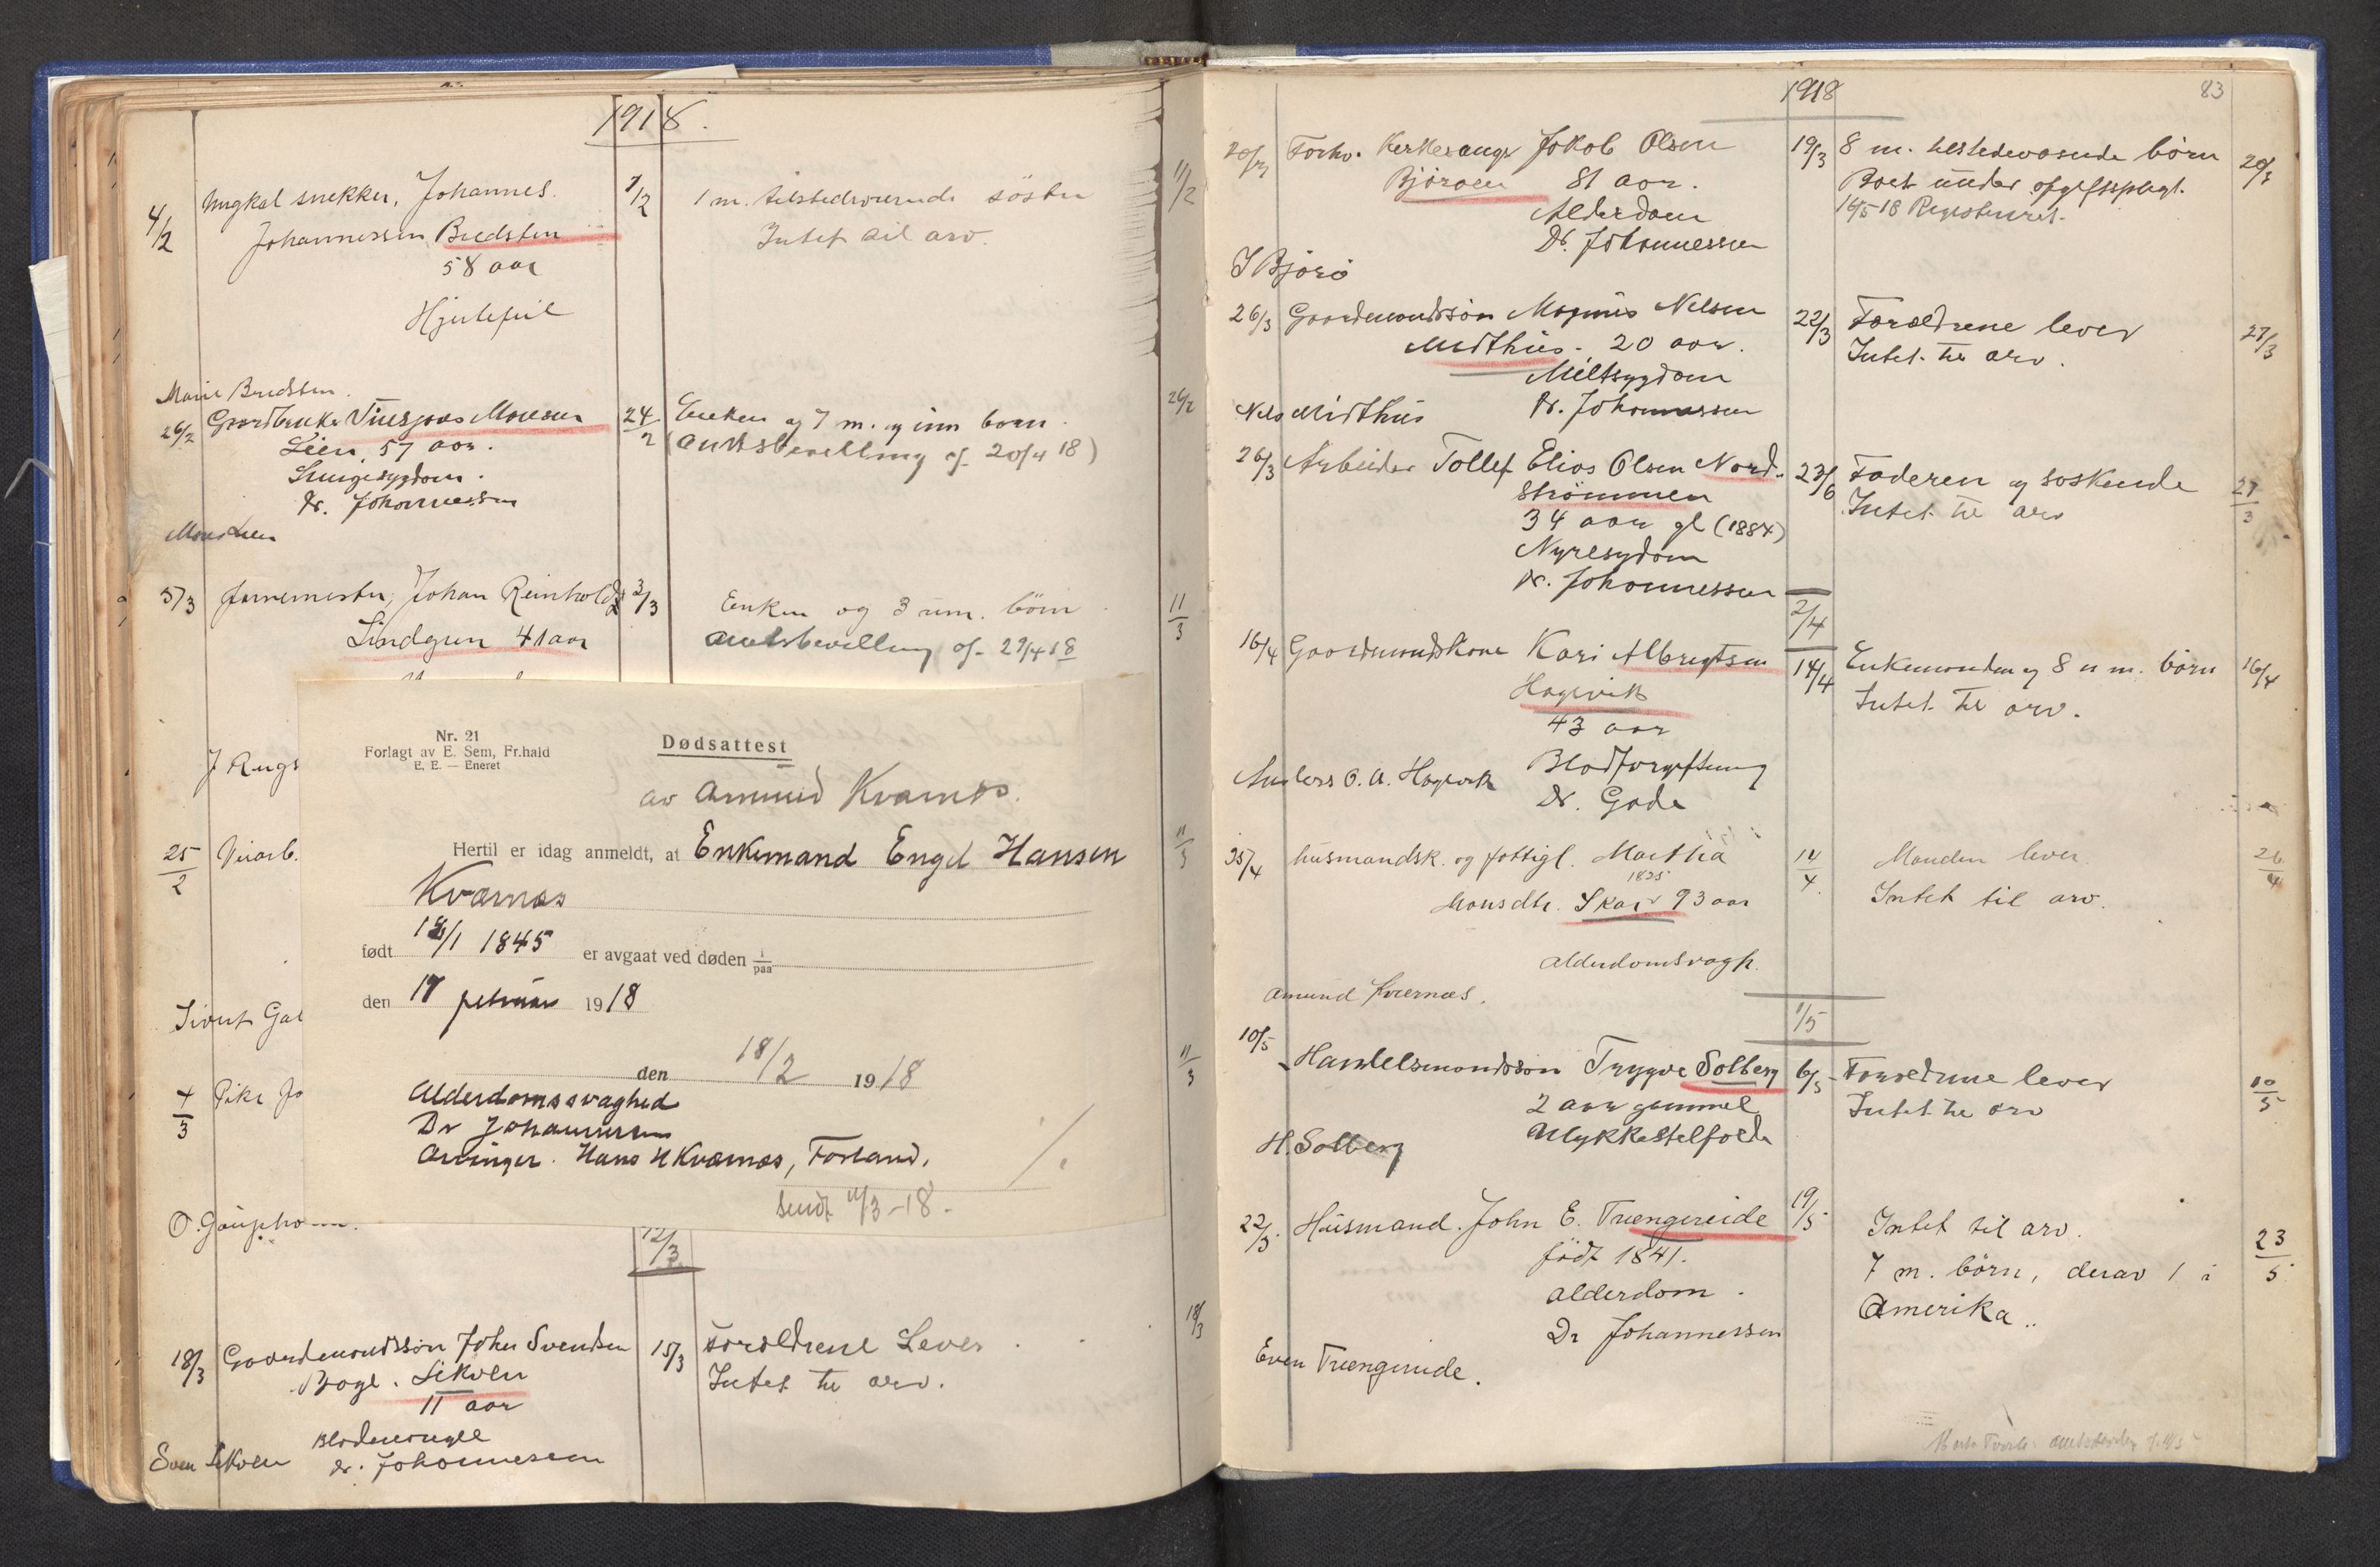 1918.
4/2 Ungkal snekker, Johannes 7/2 1 m. tilstedværende söster 11/2
Johannessen Bredsten Intet til arv.
58 aar
Hjertefeil
Marie Bredsten.
26/2 Gaardbruker Monsen 24/2 Enken og 7 m. og børn. 26/2
Leen, 57 aar. (Amtsbevilling af 20/4 18)
Lungesygdom.
Dr. Johannessen
Mons Leen
5/3 Johan Reinholdt 3/3 Enken og 3 um. börn 11/3
Lindgren 41 aar Amtsbevilling af 29/4 18
Nr. 21
Forlagt av E. Sem, Fr.hald
E. E. — Eneret
Dødsattest
av Amund Kvarnes.
J Rugs
Hertil er idag anmeldt, at Enkemand Engel Hansen 11/3
25/2 Veiarb.
Kvarnes
født 1845 er avgaat ved døden i/paa
den 17 februar 1918
Sivert Gal
den 18/2 1918 11/3
4/3 Pike Jo
Alderdomssvaghed
Dr Johannessen
Arvinger. Hans H Kvarnæs, Forland.
sendt 11/3-18.
O. Gaupholm.
12/3
18/3 Gaardmandssøn John Svendsen 15/3 Foreldrene Lever 18/3
Bogl. Likoen Intet til arv.
11 aar
Blodmangel
Sven Likoen Dr. Johannessen
1918 83
20/3 Forhv. Jakob Olsen 19/3 8 m. tilstedeværende börn 20/3
Björoen 81 aar. Boet under afgiftspligt.
Alderdom 16/5-18 Registreret.
Dr. Johannessen
J Björö
26/3 Gaardmandssøn Magnus Nelsen 22/3 Foreldrene lever 27/3
Midthus. 20 aar. Intet til arv.
Miltsygdom
Nels Midthus Dr. Johannessen
26/3 Arbeider Tollef Elias Olsen Nord- 23/6 Faderen og søskende 27/3
strømmen Intet til arv
34 aar gl (1884)
Nyresygdom
Dr. Johannessen
2/4
16/4 Gaardmandskone Kari Albregtsen 14/4 Enkemanden og 8 u m. børn 16/4
Hagevik Intet til arv.
43 aar
Blodforgiftning
Anders O. A. Hagevik Dr. Gade
25/4 husmandsk. og fattigl. Martha 14/4 Manden lever. 26/4
1825
Monsdtr. Skar 93 aar Intet til arv.
alderdomsvagh.
Amund Kvernes.
1/5
10/5 Handelsmandssøn Trygve Solberg 6/5 Foreldrene lever 10/5
2 aar gammel Intet til arv
Ulykkestilfælde
H. Solberg
22/5 Husmand. John E. Trengereide 19/5 Intet til arv. 23/5
født 1841. 7 m. børn, derav 1 i
alderdom. Amerika..
Dr Johannessen
Even Trengereide.